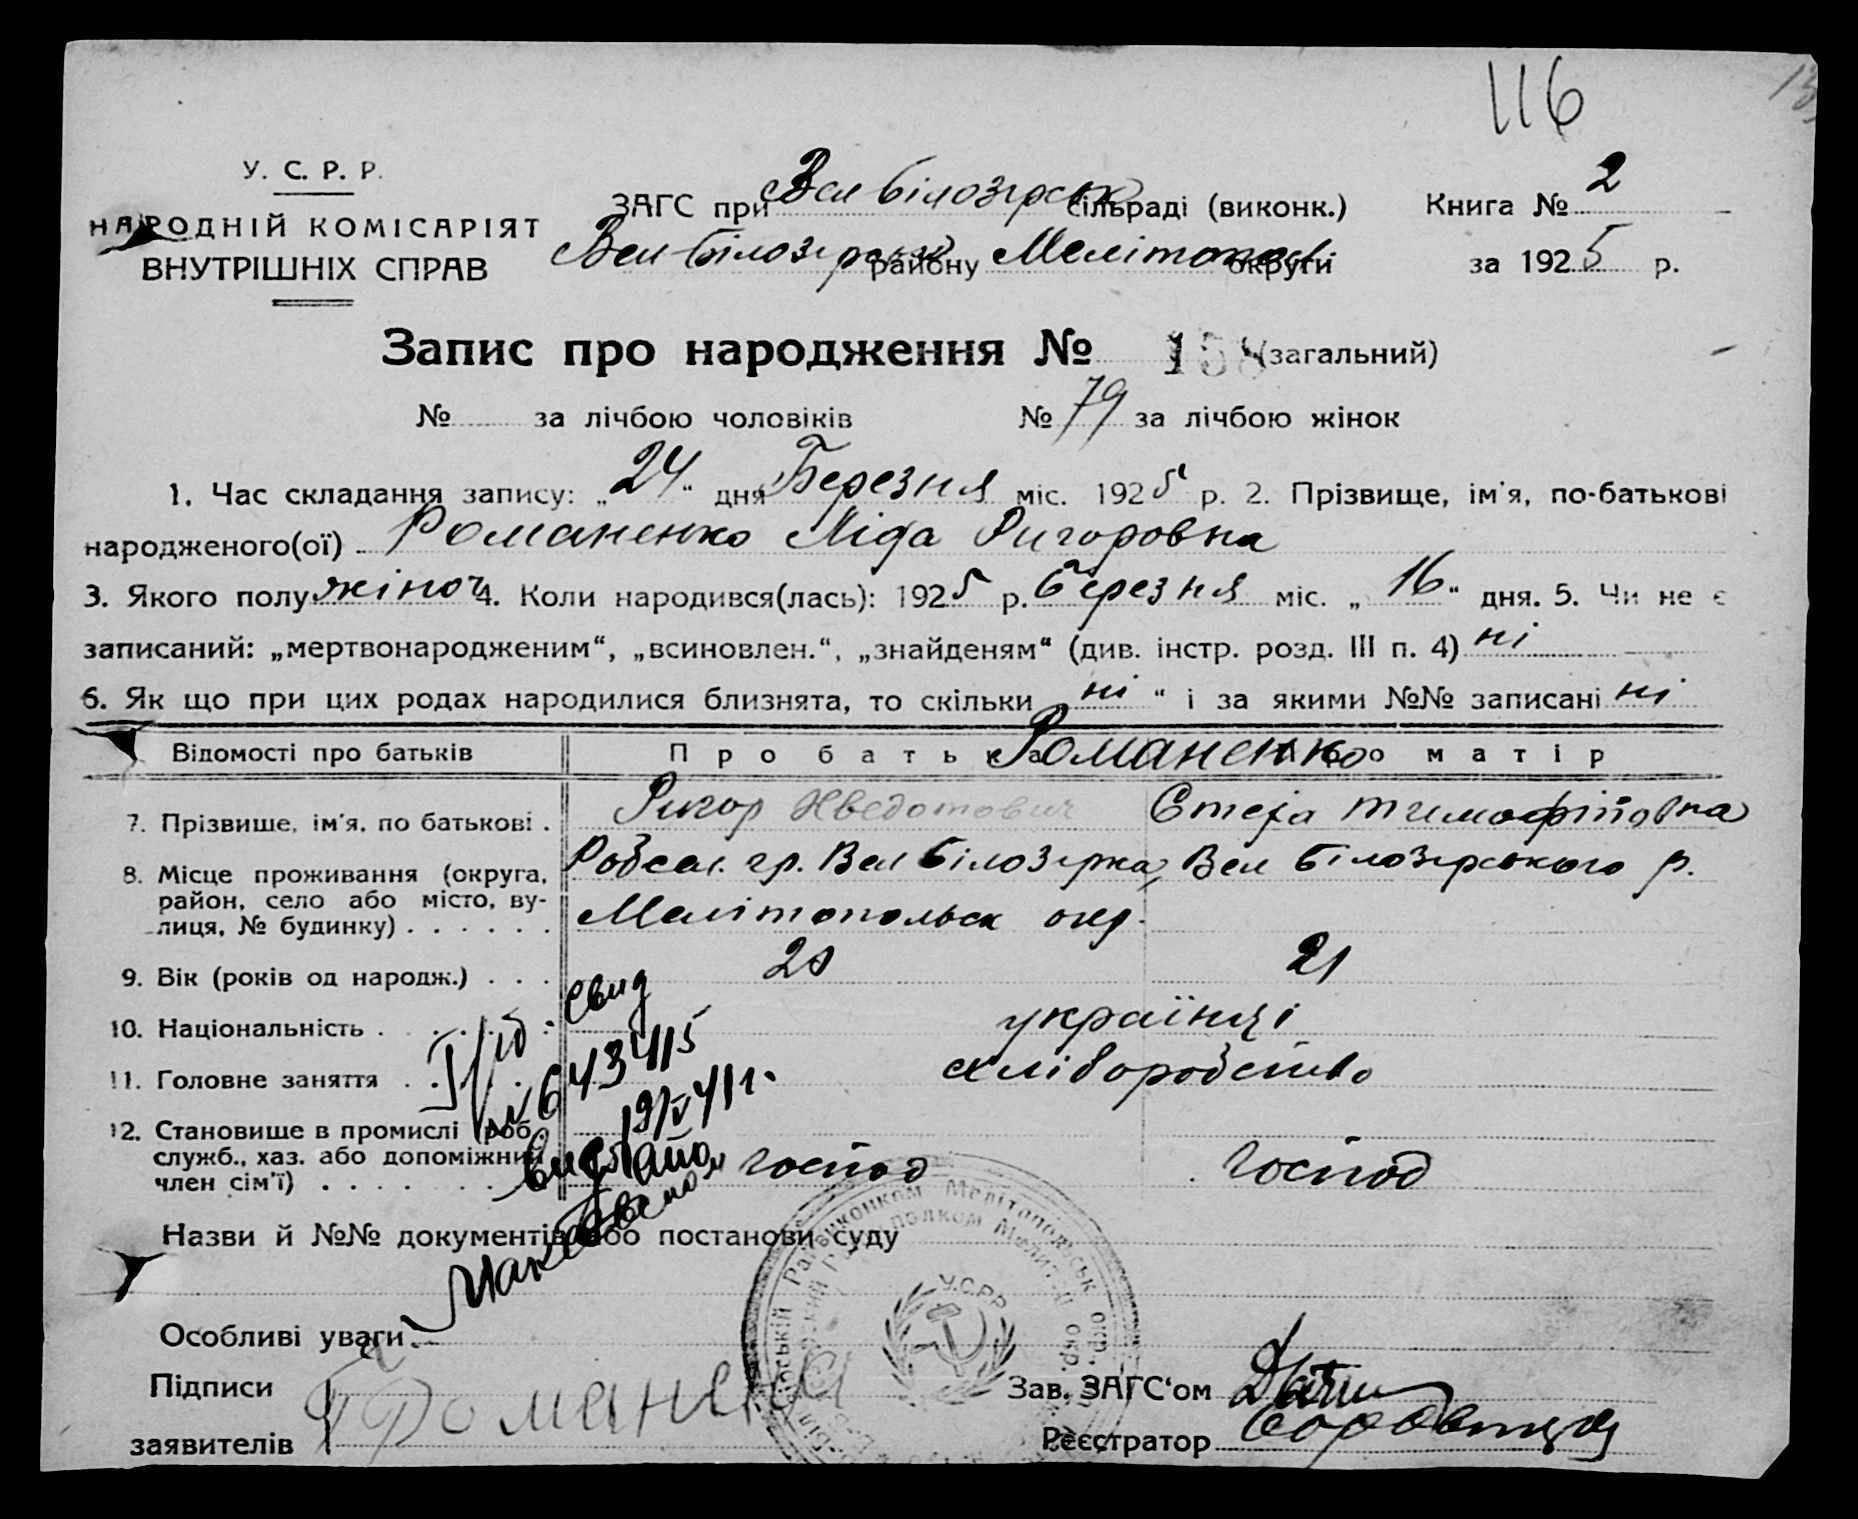 116
У. С. Р. Р.
НАРОДНІЙ КОМІСАРІЯТ
ВНУТРІШНІХ СПРАВ
ЗАГС при Вел Білозерськ сільраді (виконк.) Книга № 2
Вел Білозерськ району Мелітопол округи за 1925 р.
Запис про народження № 158 (загальний)
№ за лічбою чоловіків № 79 за лічбою жінок
1. Час складання запису: „24“ дня Березня міс. 1925 р. 2. Прізвище, ім'я, по-батькові
народженого(ої) Романенко Ліда Ригоровна
3. Якого полу жіноч 4. Коли народився(лась): 1925 р. березня міс. „16“ дня. 5. Чи не є
записаний: „мертвонародженим“, „всиновлен.“, „знайденям“ (див. інстр. розд. III п. 4) ні
6. Як що при цих родах народилися близнята, то скільки „ні“ і за якими №№ записані ні
Відомості про батьків Про батька Романенко Про матір
7. Прізвище, ім'я, по батькові . Ригор Хведотович
8. Місце проживання (округа, Вел Білозерка, Вел Білозерського р.
район, село або місто, ву-
лиця, № будинку) . . . . . . Мелітопольск окр.
9. Вік (років од народж.) . . . 21
10. Національність . українці
11. Головне заняття . хліборобство
12. Становище в промислі (роб.
служб., хаз. або допоміжний
член сім'ї) . . . . господ господ
свид
№ 643415
Назви й №№ документів або постанови суду
У.С.Р.Р.
Особливі уваги
Підписи
заявителів Романенко
Зав. ЗАГС‘ом
Реєстратор